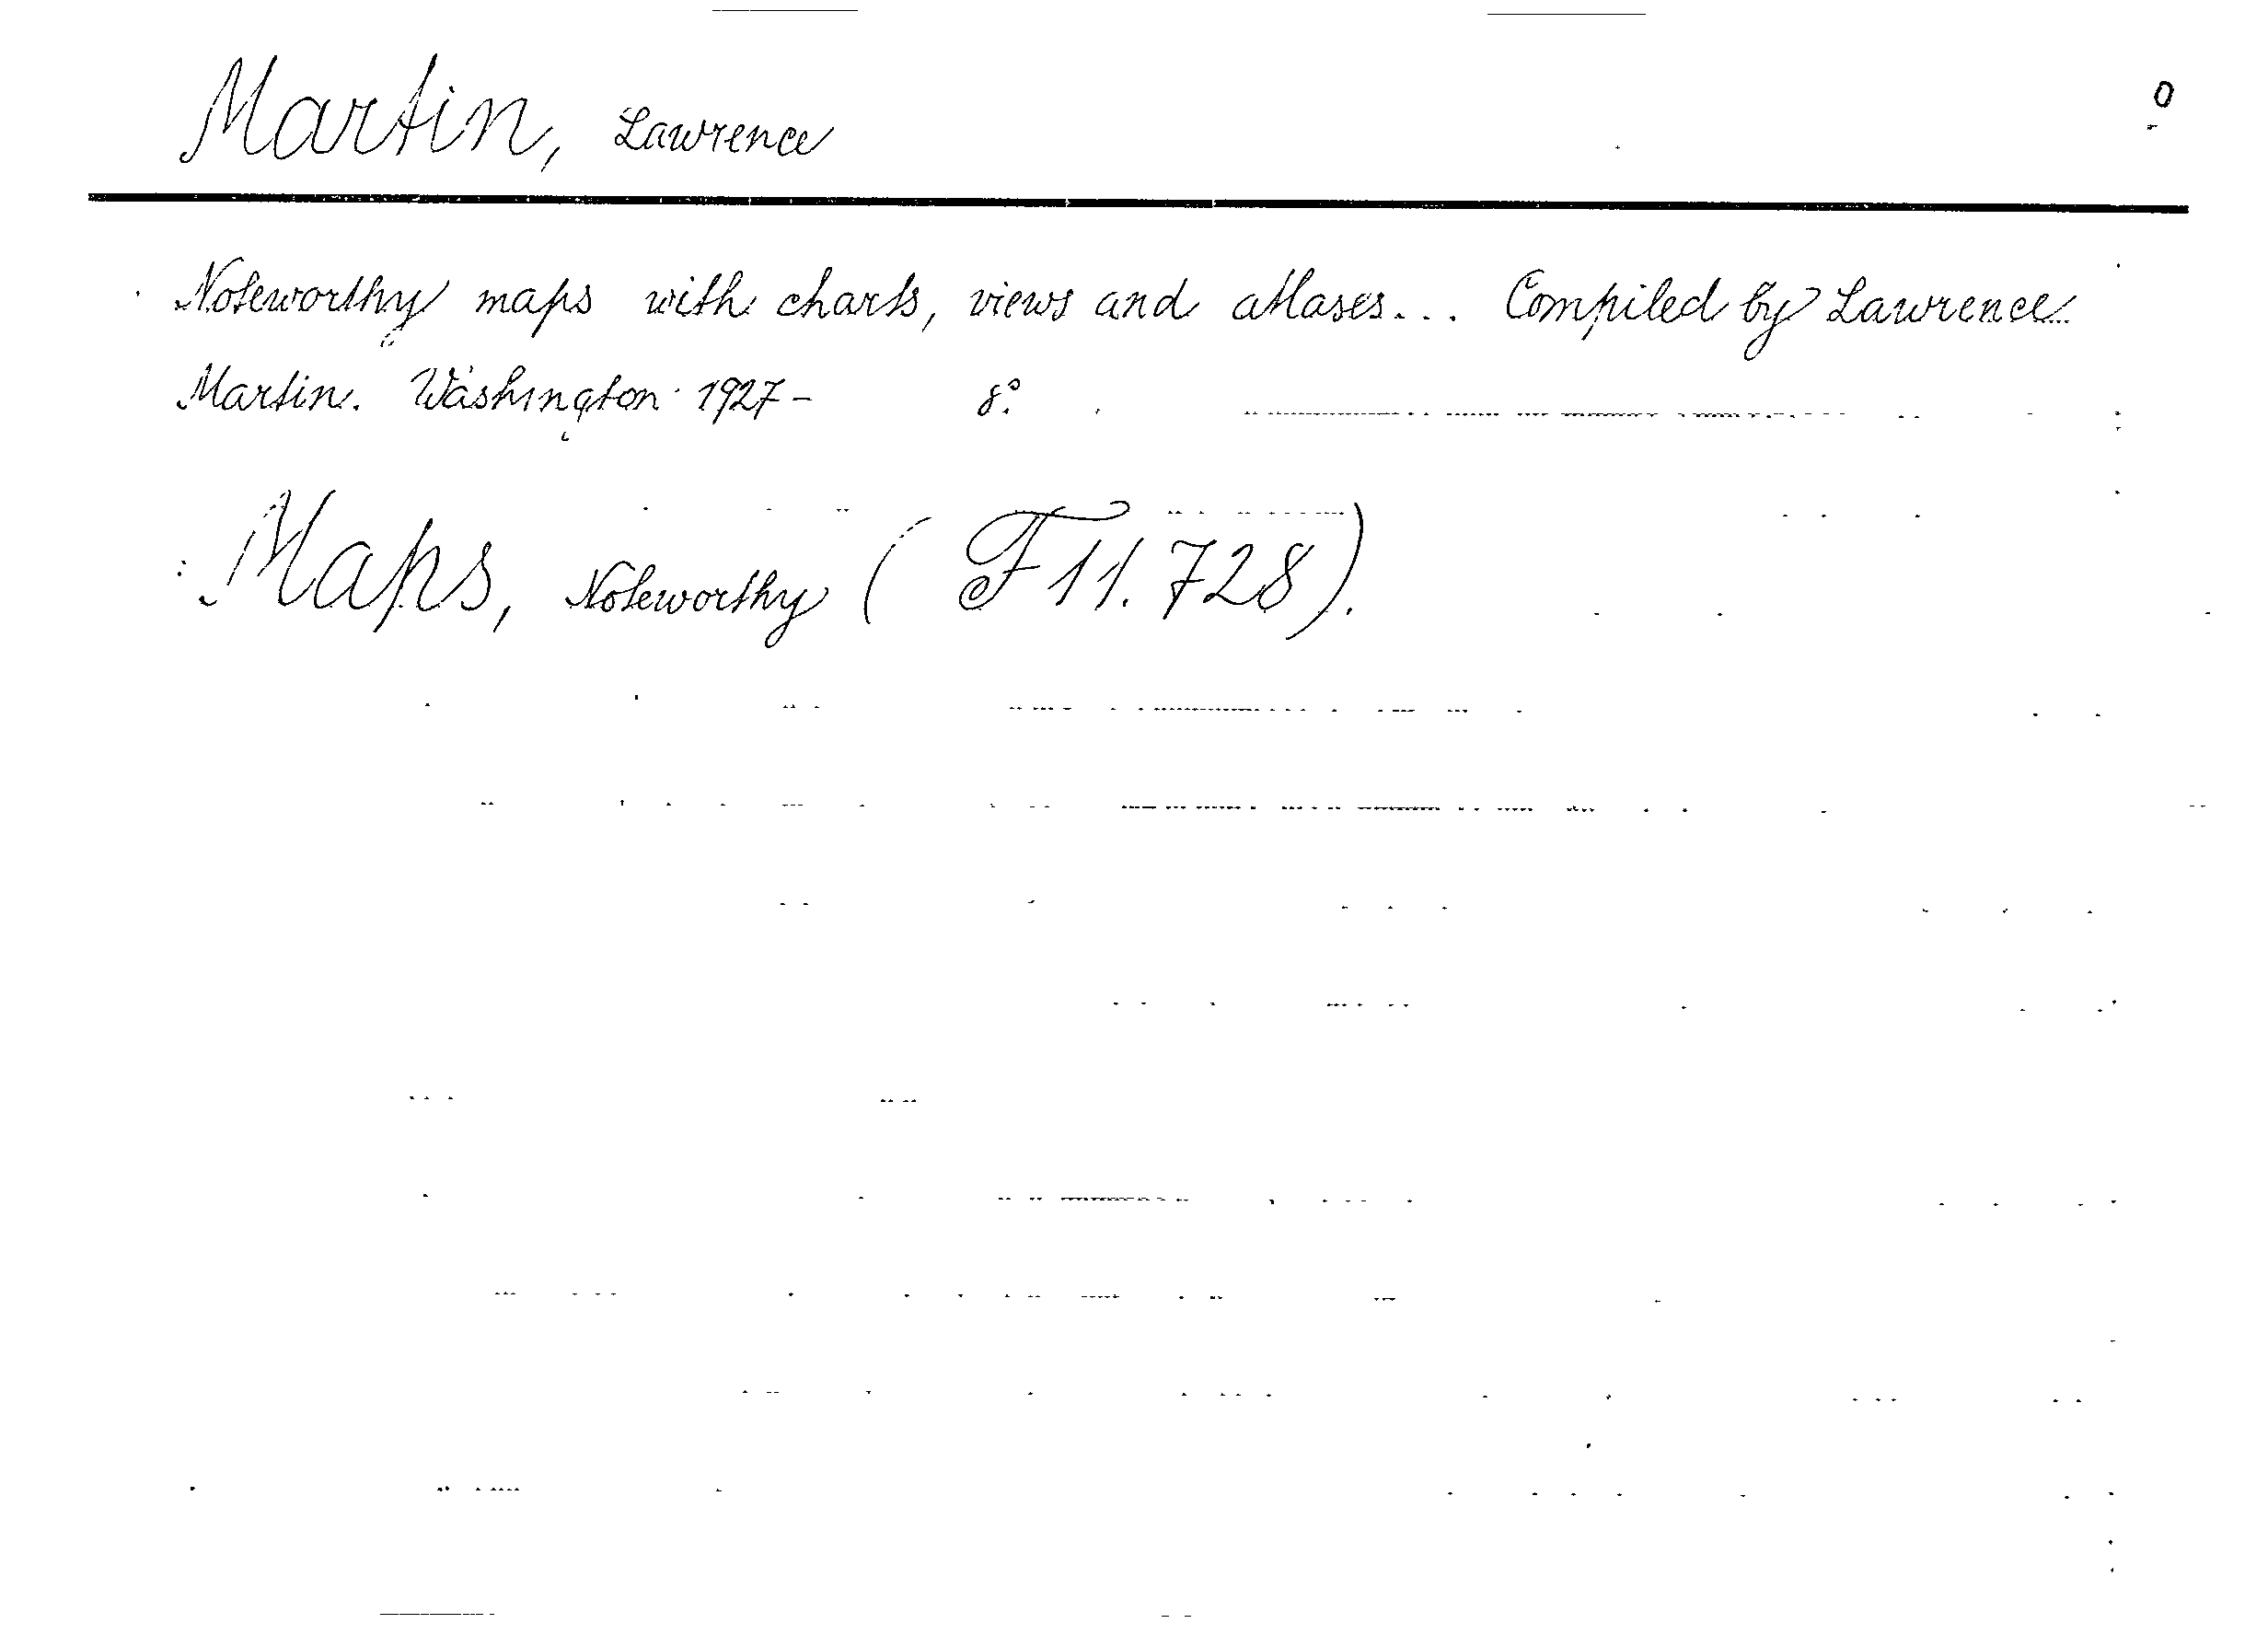 Martin, Lawrence
0
Noteworthy maps with charts, views and atlases... Compiled by Lawrence
Martin. Washington 1927- 8°.
Maps, Noteworthy (F 11.728).